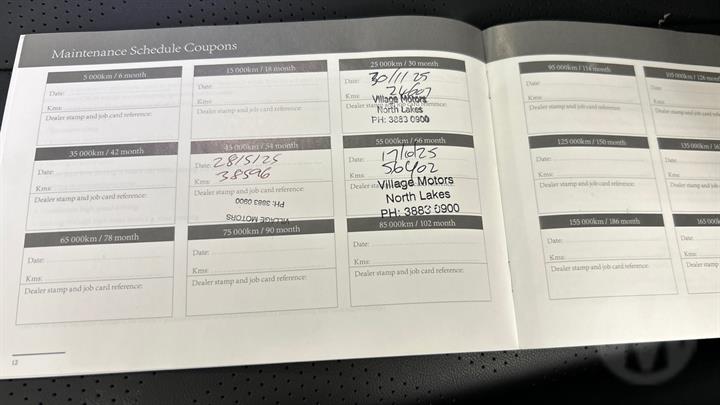 Maintenance Schedule Coupons
5 000km / 6 month
Date:
Kms:
Dealer stamp and job card reference:
15 000km / 18 month
Date:
Kms:
Dealer stamp and job card reference:
25 000km / 30 month
Date: 30/11/25
Kms:
Dealer stamp
reference:
Village Motors
North Lakes
PH: 3883 0900
35 000km / 42 month
Date:
Kms:
Dealer stamp and job card reference:
45 000km / 54 month
Date: 28/5/25
Kms: 38596
Dealer stamp and job card reference:
PH: 3883 0900
VILLAGE MOTORS
55 000km / 66 month
Date: 17/10/25
Kms: 56402
Dealer
Village Motors
North Lakes
PH: 3883 0900
65 000km / 78 month
Date:
Kms:
Dealer stamp and job card reference:
75 000km / 90 month
Date:
Kms:
Dealer stamp and job card reference:
85 000km / 102 month
Date:
Kms:
Dealer stamp and job card reference:
12
95 000km / 114 month
Date:
Kms:
Dealer stamp and job card reference:
105 000km / 126 mon
Date:
Kms:
Dealer stamp and
125 000km / 150 month
Date:
Kms:
Dealer stamp and job card reference:
135 000km / 16
Date:
Kms:
Dealer stamp and
155 000km / 186 month
Date:
Kms:
Dealer stamp and job card reference:
165 000k
Date:
Kms:
Dealer stamp